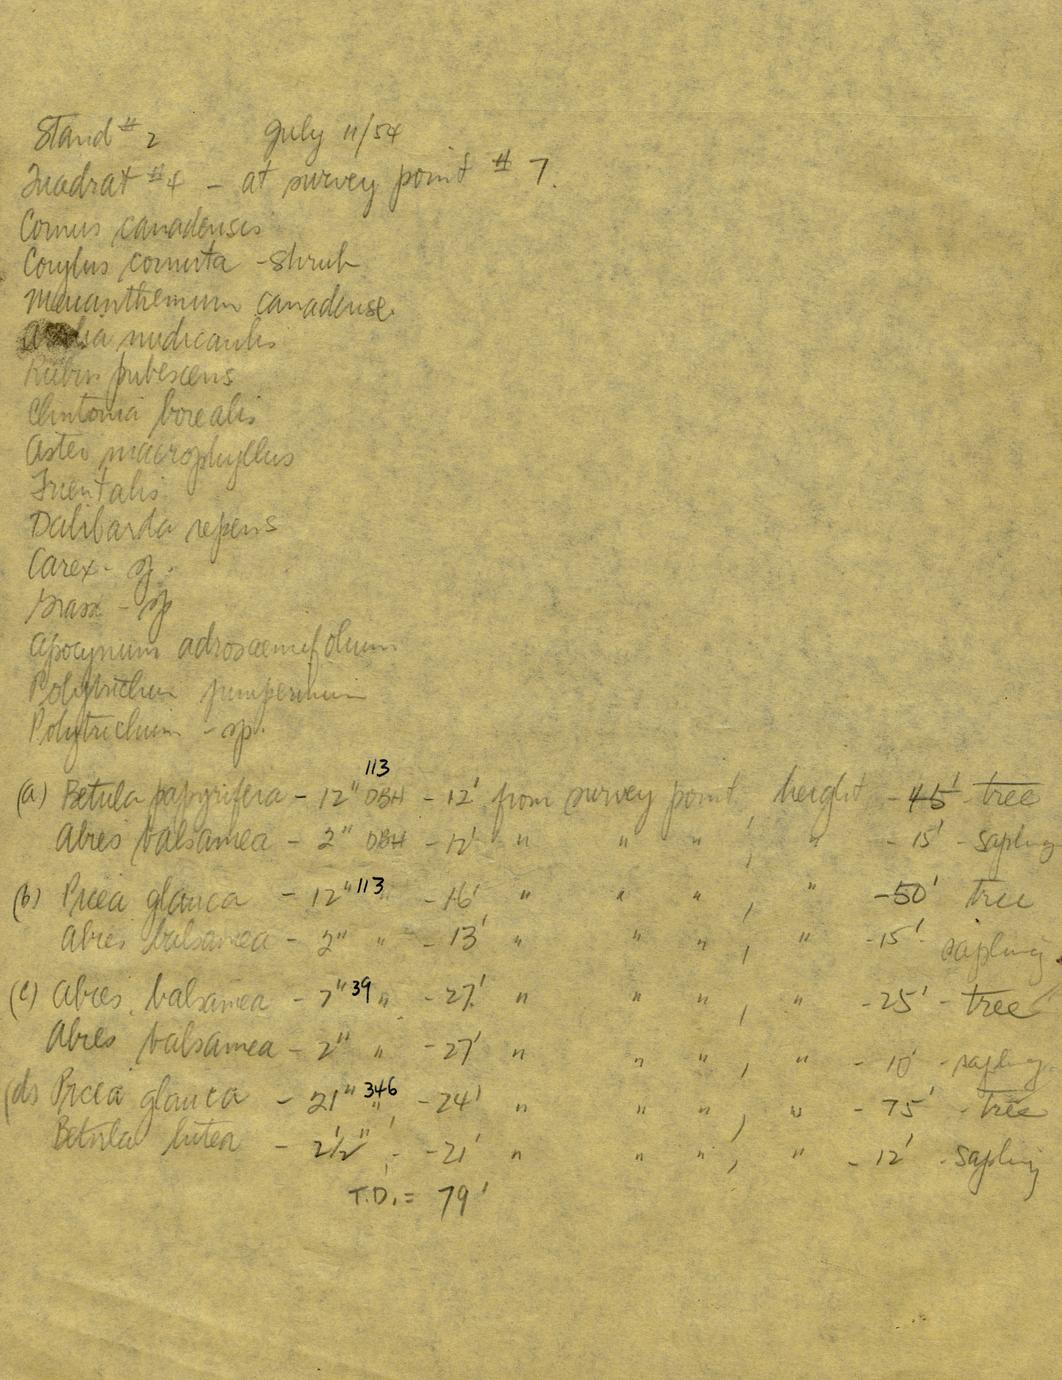 Stand #2 July 11/54
Quadrat #4 - at survey point #7.
Cornus canadensis
Corylus cornuta - shrub
Maianthemum canadense.
Aralia nudicaulis
Rubus pubescens
Clintonia borealis
Aster macrophyllus
Trientalis
Dalibarda repens
Carex - sp.
Grass - sp
Apocynum adrosaemifolium
Polytrichum juniperinum
Polytrichum - sp.
113
(a) Betula papyrifera - 12" DBH - 12' from survey point, height - 45' tree
Abies balsamea - 2" DBH - 12' " " " , " - 15' - sapling
(b) Picea glauca - 12" 113 " - 16' " " " , " - 50' tree
Abies balsamea - 2" " - 13' " " " , " - 15' sapling.
(c) Abies balsamea - 7" 39 " - 27' " " " , " - 25' - tree
Abies balsamea - 2" " - 27' " " " , " - 10' - sapling.
(d) Picea glauca - 21" 346 " - 24' " " " , " - 75' - tree
Betula lutea - 2½" " - 21' " " " , " - 12' - sapling
T.D. = 79'